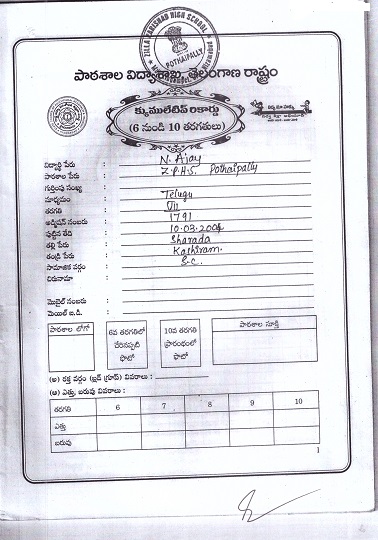 ZILLA PARISHAD HIGH SCHOOL
POTHAIPALLY
పాఠశాల విద్యాశాఖ, తెలంగాణ రాష్ట్రం
క్యుములేటివ్ రికార్డు
(6 నుండి 10 తరగతులు)
విద్యార్థి పేరు : N. Ajay
పాఠశాల పేరు : Z.P.H.S. Pothaipally
గుర్తింపు సంఖ్య :
మాధ్యమం : Telugu
తరగతి : VII
అడ్మిషన్ నంబరు : 1791
పుట్టిన తేది : 10-03-2004
తల్లి పేరు : Sharada
తండ్రి పేరు : Kashiram.
సామాజిక వర్గం : S.C.
చిరునామా :
మొబైల్ నంబరు :
మెయిల్ ఐ.డి. :
పాఠశాల లోగో
6వ తరగతిలో చేరినప్పటి ఫొటో
10వ తరగతి ప్రారంభంలో ఫొటో
పాఠశాల సూక్తి
(అ) రక్త వర్గం (బ్లడ్ గ్రూప్) వివరాలు :
(ఆ) ఎత్తు, బరువు వివరాలు :
తరగతి 6 7 8 9 10
ఎత్తు
బరువు
1